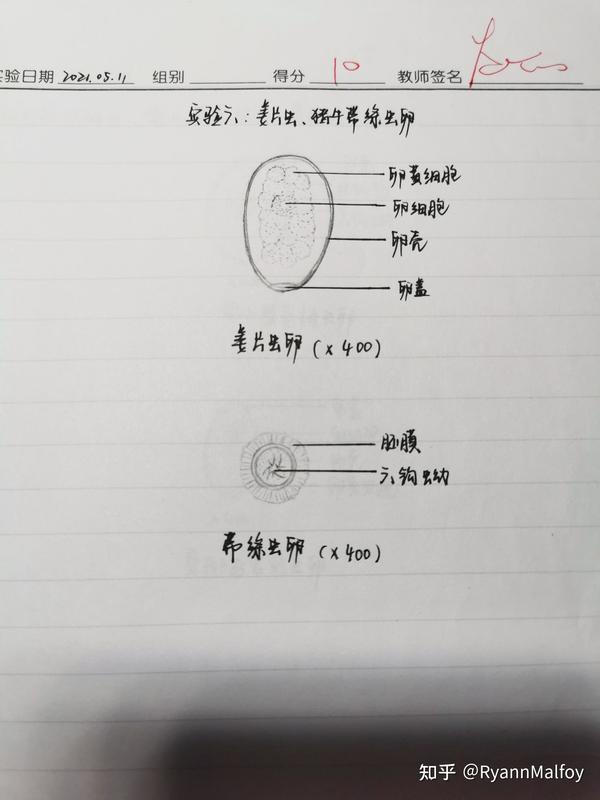 实验日期 2021.05.11 组别 得分 10 教师签名
实验六:姜片虫、猪牛带绦虫卵
卵黄细胞
卵细胞
卵壳
卵盖
姜片虫卵 (×400)
胚膜
六钩虫幼
带绦虫卵 (×400)
知乎 @RyannMalfoy